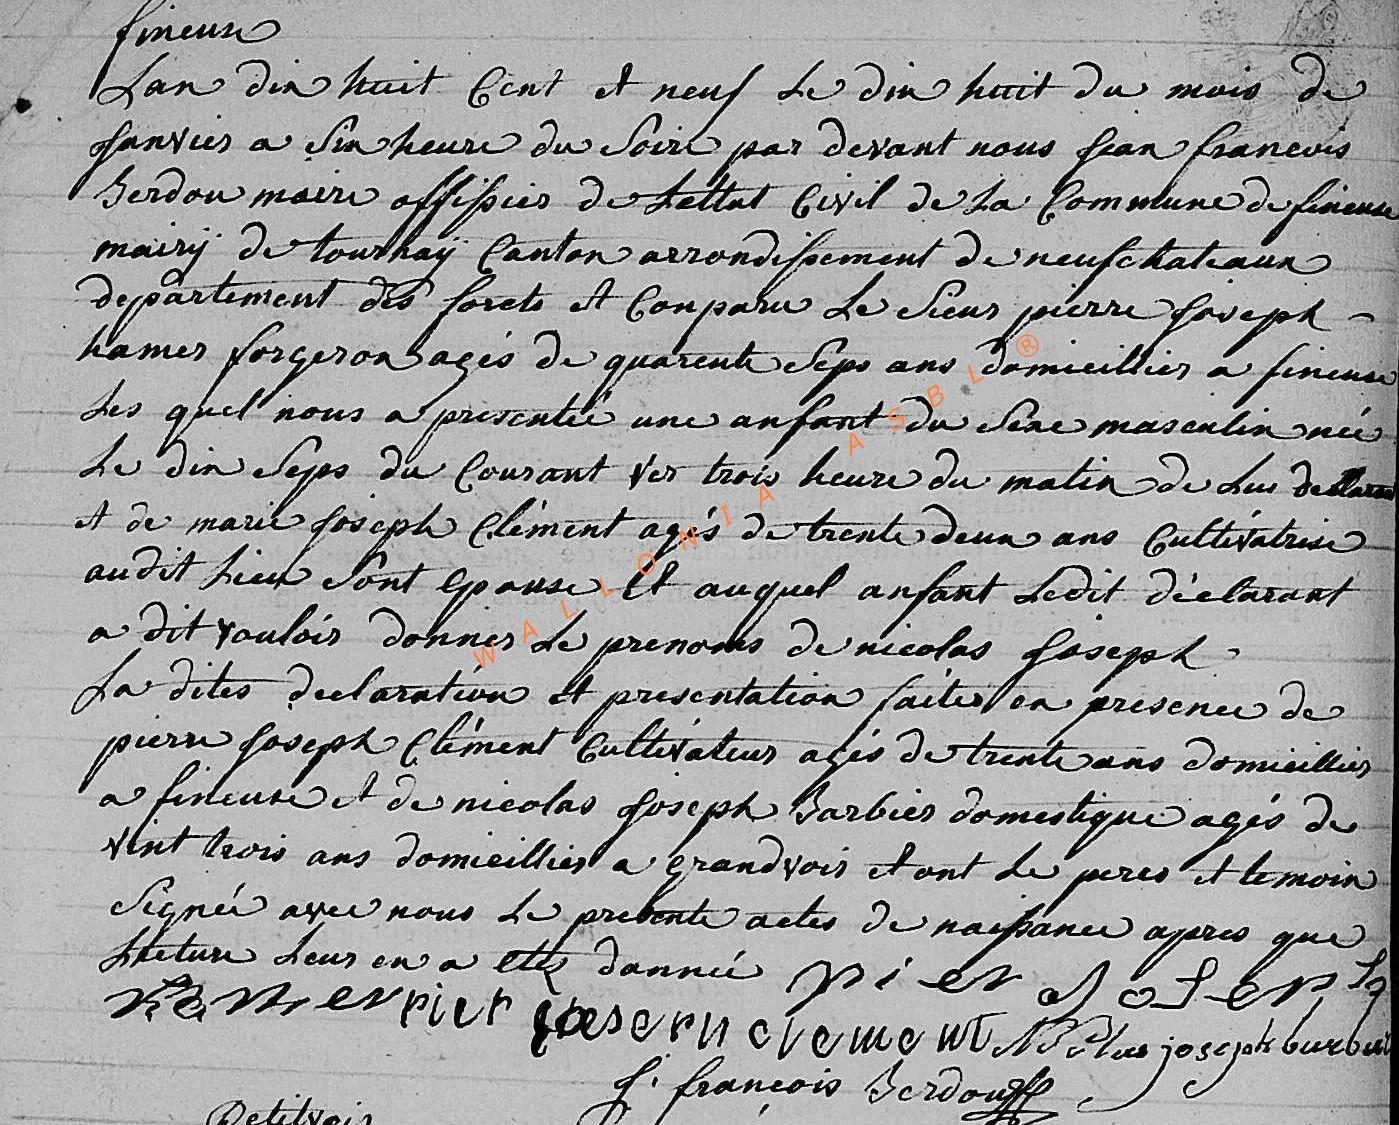 fineuse
Lan dix huit Cent et neuf Le dix huit du mois de
Janvier a Six heure du Soire par devant nous jean francois
Berdou maire offissier de Lettat Civil de La Commune de fineuse
mairÿ de tournaÿ Canton arrondissement de neufchateaux
departement des forets et Conparu Le Sieur pierre Joseph
hamer forgeron agés de quarente Seps ans domicillier a fineuse
Les quel nous a presentéé une anfant du Sexe masculin néé
Le dix Seps du Courant Ver trois heure du matin de Lui declarant
et de marie Joseph Clément agés de trente deux ans Cultivatrise
audit Lieu Sont epouse Et auquel anfant Ledit déclarant
a dit vouloir donner Le prenoms de nicolas Joseph
La dites declaration et presentation faites en presence de
pierre Joseph Clément Cultivateur agés de trente ans domicillier
a fineuse et de nicolas Joseph Barbier domestique agés de
vint trois ans domicillier a grandvoir et ont Le peres et temoin
Signéé avec nous Le presente actes de naissance apres que
Lecture Leur en a etes donnéé pier Josep
hamer pier joesepn clement Nicolas joseph burbui
J. françois Berdou
Petitvoir
WALLONIA ASBL ®